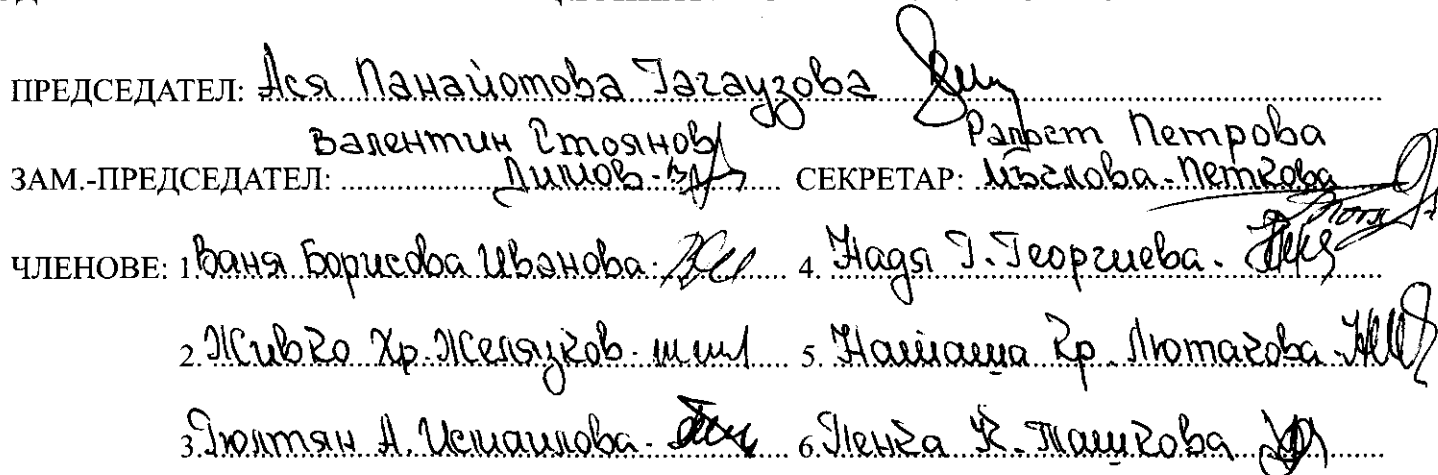 ПРЕДСЕДАТЕЛ: Ася Панайотова Гагаузова
Валентин Стоянов Радост Петрова
ЗАМ.-ПРЕДСЕДАТЕЛ: Димов СЕКРЕТАР: Мъглова-Петкова
ЧЛЕНОВЕ: 1. Ваня Борисова Иванова 4. Надя Г. Георгиева
2. Живко Хр. Желязков 5. Наташа Кр. Лютакова
3. Гюлтян А. Исмаилова 6. Пенка К. Ташкова